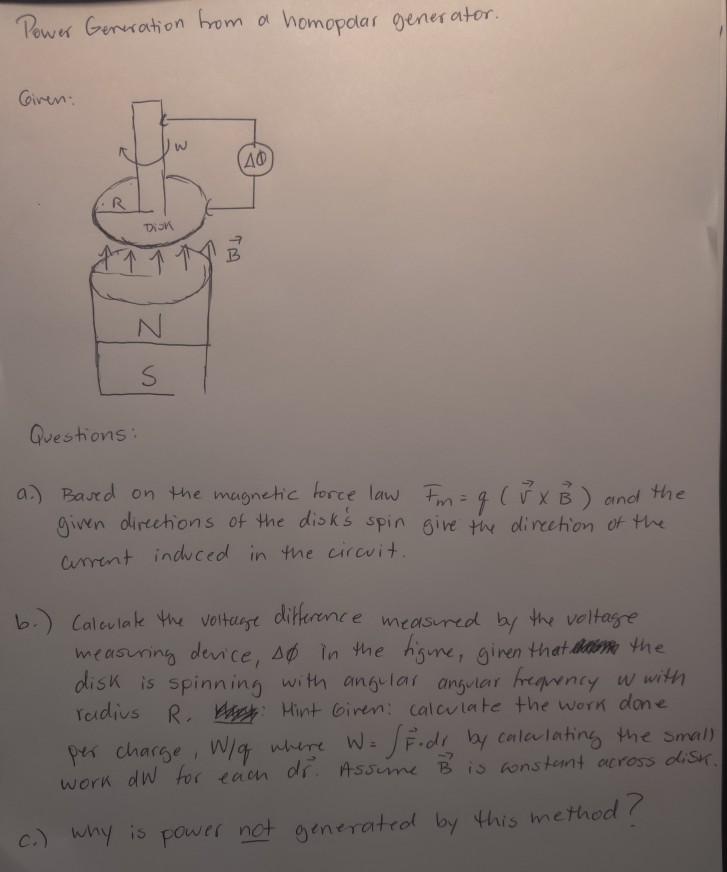 Power Generation from a homopolar generator.
Given:
w
ΔΦ
R
Disk
B⃗
N
S
Questions:
a.) Based on the magnetic force law F⃗m = q ( v⃗ x B⃗ ) and the
given directions of the disk's spin give the direction of the
current induced in the circuit.
b.) Calculate the voltage difference measured by the voltage
measuring device, ΔΦ in the figure, given that the
disk is spinning with angular angular frequency w with
radius R. : Hint Given: calculate the work done
per charge, W/q where W = ∫F⃗·dr by calculating the small
work dW for each dr⃗. Assume B⃗ is constant across disk.
c.) why is power not generated by this method?